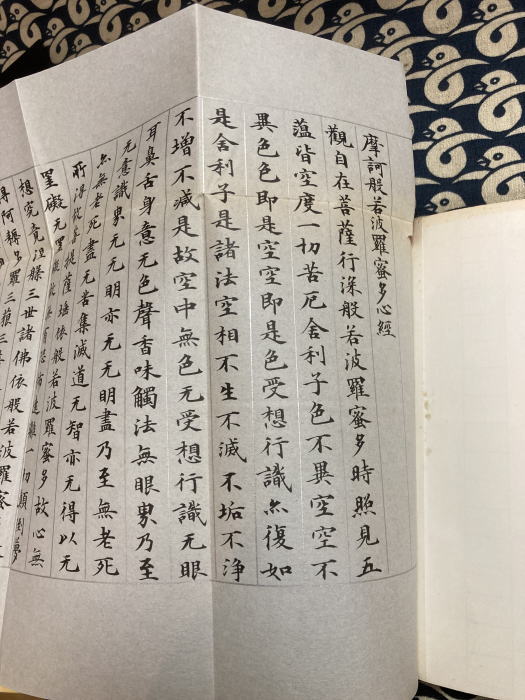 摩訶般若波羅蜜多心經
觀自在菩薩行深般若波羅蜜多時照見五
蕰皆空度一切苦厄舍利子色不異空空不
異色色即是空空即是色受想行識亦復如
是舍利子是諸法空相不生不滅不垢不淨
不增不減是故空中無色无受想行識无眼
耳鼻舌身意无色聲香味觸法無眼界乃至
无意識界无无明亦无无明盡乃至無老死
亦無老死盡无苦集滅道无智亦无得以无
所得故菩提薩埵依般若波羅蜜多故心無
罣礙无罣礙故無有恐怖遠離一切顛倒夢
想究竟涅槃三世諸佛依般若波羅蜜
得阿耨多羅三藐三